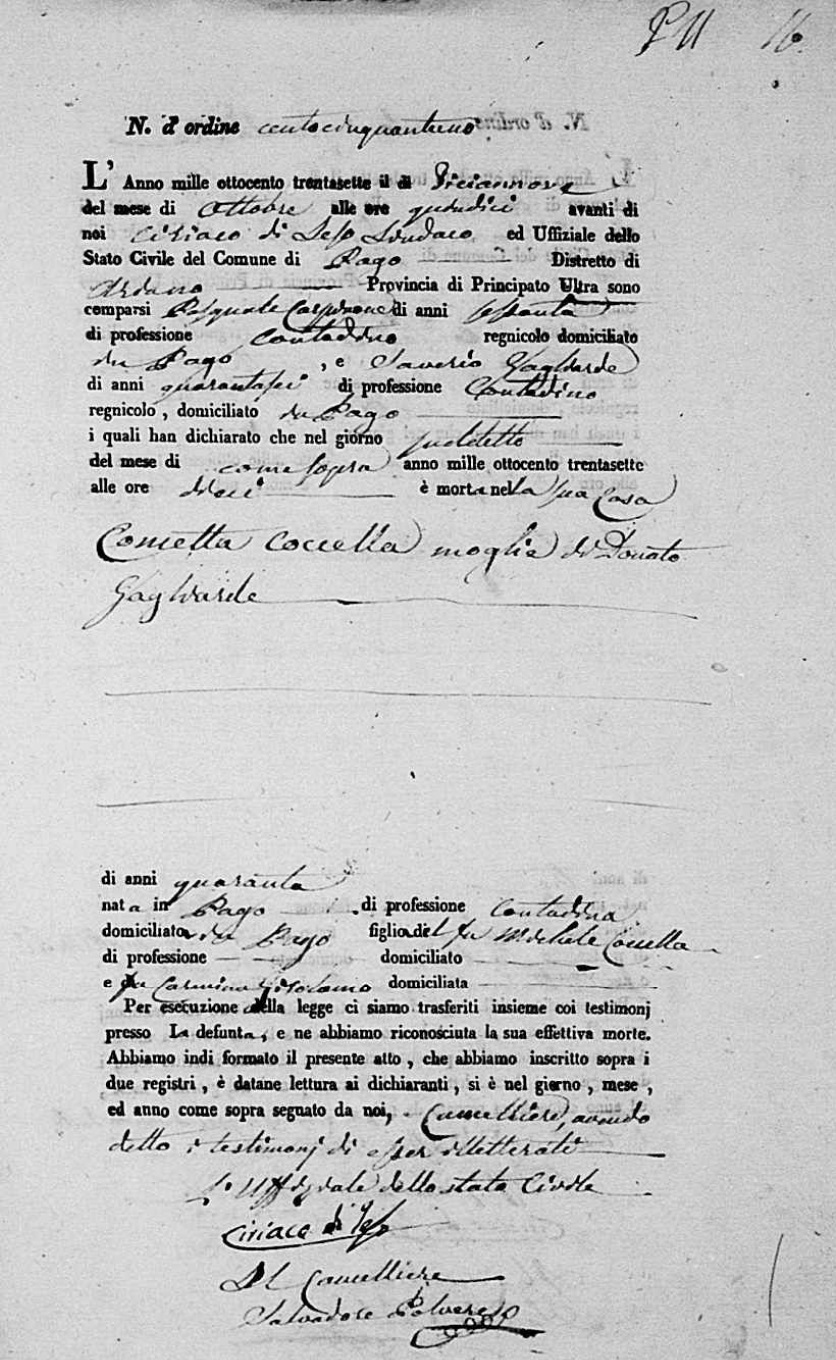 16
N. d'ordine centocinquantuno
L' Anno mille ottocento trentasette il dì Diciannove
del mese di Ottobre alle ore quindici avanti di
noi Ciriaco di Leso Sindaco ed Uffiziale dello
Stato Civile del Comune di Pago Distretto di
Ariano Provincia di Principato Ultra sono
comparsi Pasquale Carpinone di anni sessanta
di professione Contadino regnicolo domiciliato
in Pago , e Saverio Gagliarde
di anni quarantasei di professione Contadino
regnicolo , domiciliato in Pago
i quali han dichiarato che nel giorno suddetto
del mese di come sopra anno mille ottocento trentasette
alle ore dieci è morta nella sua Casa
Cometta Coccella moglie di Donato
Gagliarde
di anni quaranta
nata in Pago di professione Contadina
domiciliata in Pago figlia del fu Michele Coccella
di professione domiciliato
e fu Carmina Girolamo domiciliata
Per esecuzione della legge ci siamo trasferiti insieme coi testimonj
presso La defunta, e ne abbiamo riconosciuta la sua effettiva morte.
Abbiamo indi formato il presente atto , che abbiamo inscritto sopra i
due registri , è datane lettura ai dichiaranti , si è nel giorno , mese ,
ed anno come sopra segnato da noi, Cancelliere, avendo
detto i testimonj di esser illetterati
L'Uffiziale dello stato Civile
Ciriaco di Leso
Il Cancelliere
Salvadore Polvereso